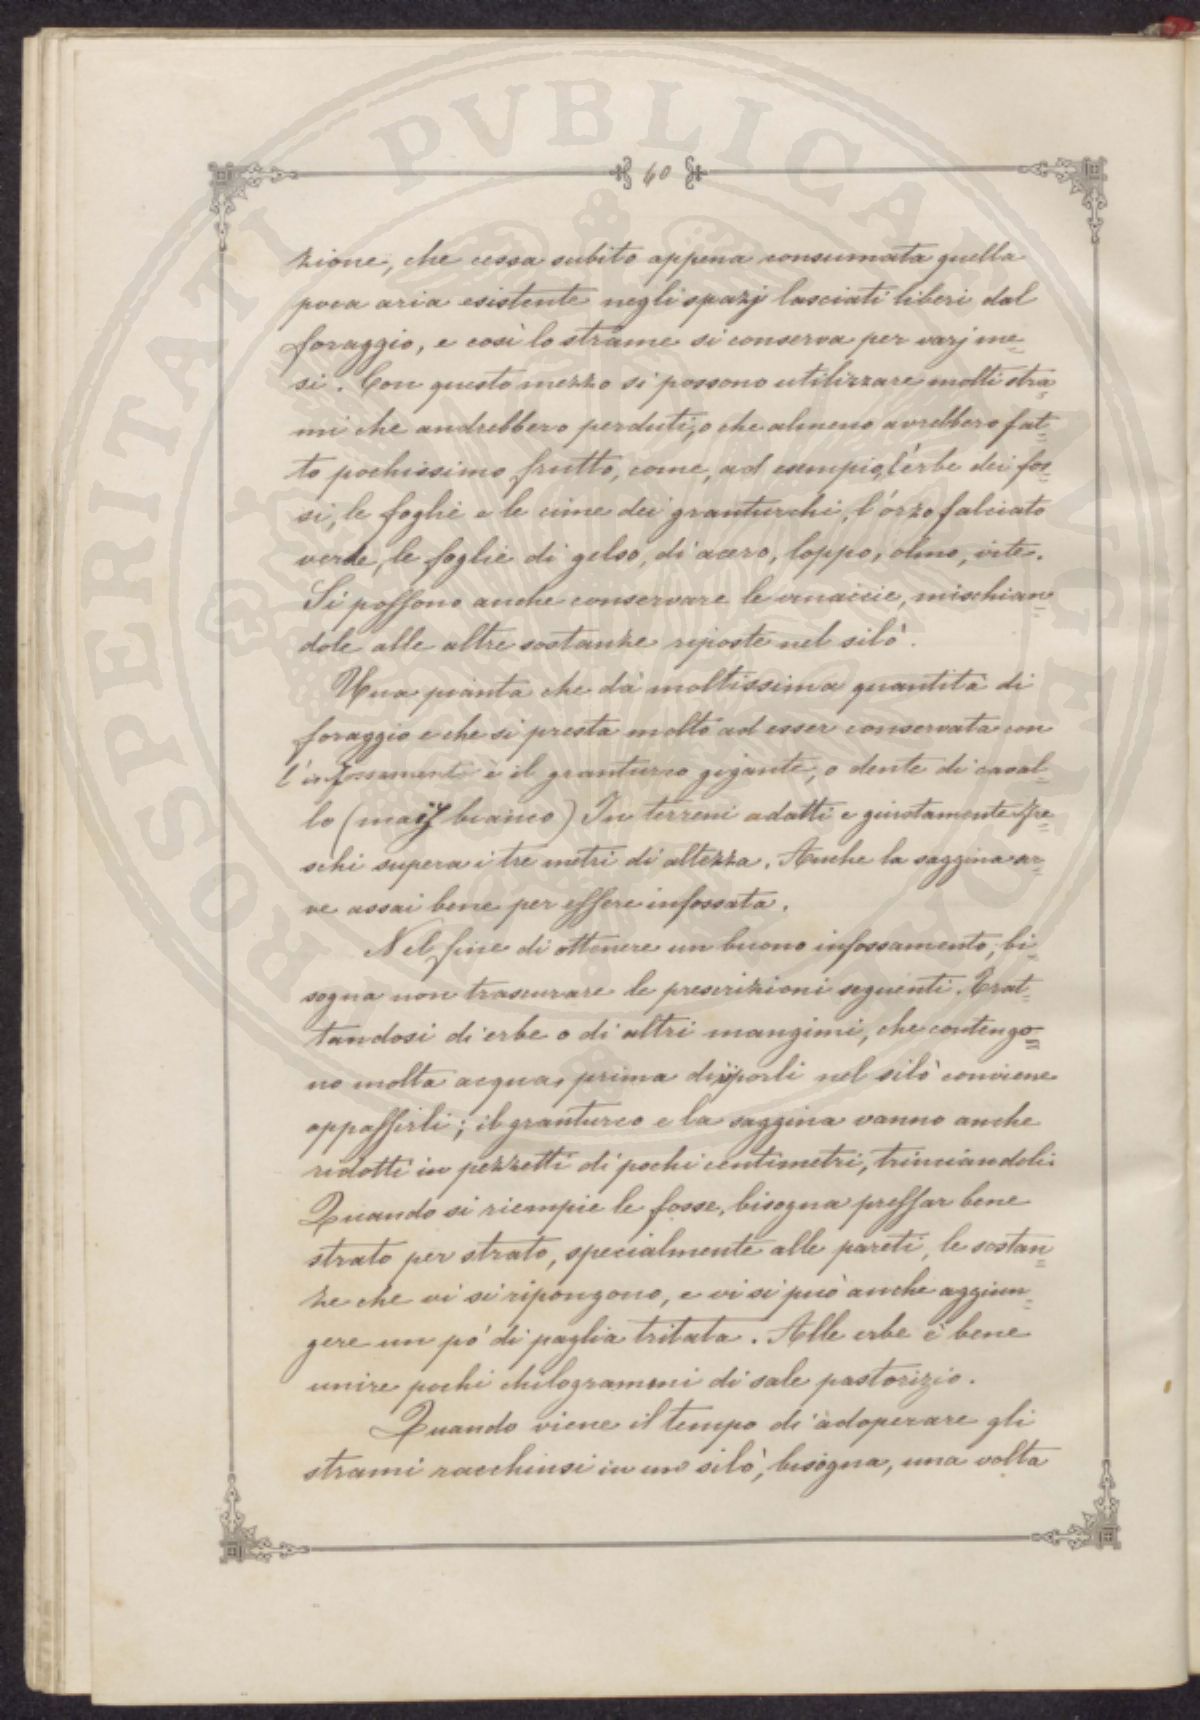 60
zione, che cessa subito appena consumata quella
poca aria esistente negli spazj lasciati liberi dal
foraggio, e così lo strame si conserva per varj me=
si. Con questo mezzo si possono utilizzare molti stra=
mi che andrebbero perduti, o che almeno avrebbero fat=
to pochissimo frutto, come, ad esempio, l'erbe dei fos=
si, le foglie e le cime dei granturchi, l'orzo falciato
verde, le foglie di gelso, di acero, loppo, olmo, vite.
Si possono anche conservare le vinaccie, mischian=
dole alle altre sostanze riposte nel silò.
Una pianta che dà moltissima quantità di
foraggio e che si presta molto ad esser conservata con
l'infossamento è il granturco gigante, o dente di caval=
lo (maïs bianco) In terreni adatti e giustamente fre=
schi supera i tre metri di altezza. Anche la saggina ser=
ve assai bene per essere infossata.
Nel fine di ottenere un buono infossamento, bi=
sogna non trascurare le prescrizioni seguenti. Trat=
tandosi di erbe o di altri mangimi, che contengo=
no molta acqua, prima di riporli nel silò conviene
appassirli; il granturco e la saggina vanno anche
ridotti in pezzetti di pochi centimetri, trinciandoli.
Quando si riempie le fosse, bisogna pressar bene
strato per strato, specialmente alle pareti, le sostan=
ze che vi si ripongono, e vi si può anche aggiun=
gere un pò di paglia tritata. Alle erbe è bene
unire pochi chilogrammi di sale pastorizio.
Quando viene il tempo di adoperare gli
strami racchiusi in uno silò, bisogna, una volta
PROSPERITATI PVBLICAE AVGENDAE